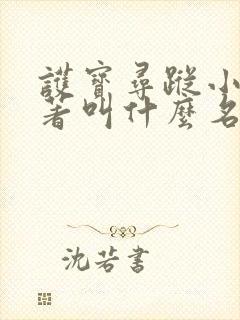 護寶尋蹤小
著叫什麼名
沈若書